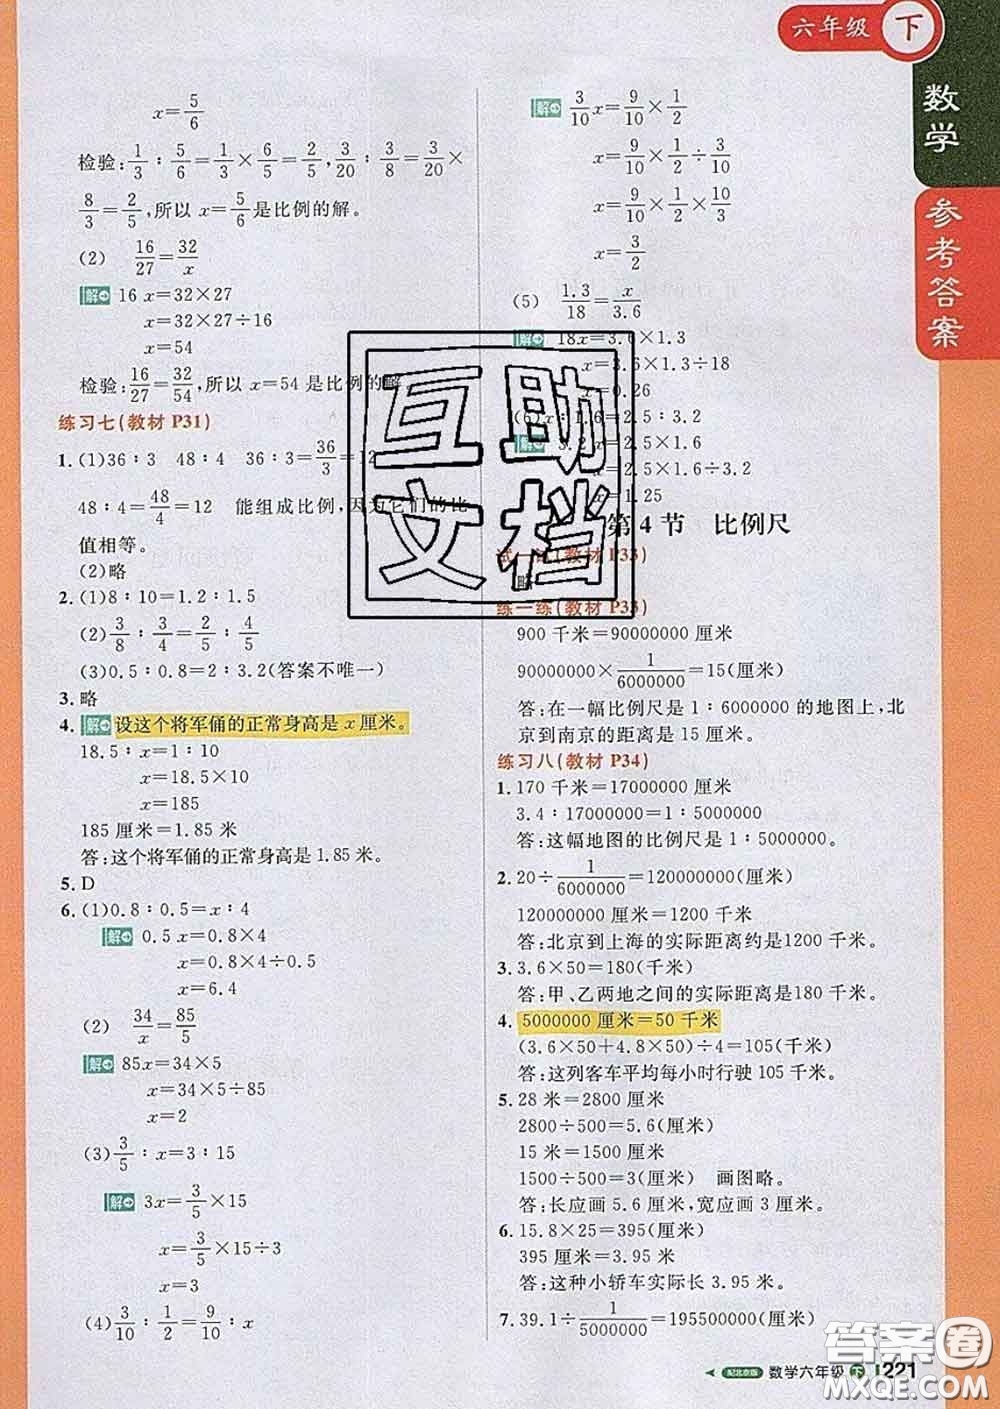 六年级 下
数学
参考答案
x=5/6
检验:1/3∶5/6=1/3×6/5=2/5,3/20∶3/8=3/20×
8/3=2/5,所以 x=5/6是比例的解。
(2) 16/27=32/x
解 16x=32×27
x=32×27÷16
x=54
检验:16/27=32/54,所以 x=54 是比例的解。
练习七(教材 P31)
1.(1)36∶3 48∶4 36∶3=36/3=12
48∶4=48/4=12 能组成比例,因为它们的比
值相等。
(2)略
2.(1)8∶10=1.2∶1.5
(2)3/8∶3/4=2/5∶4/5
(3)0.5∶0.8=2∶3.2(答案不唯一)
3.略
4.解 设这个将军俑的正常身高是 x 厘米。
18.5∶x=1∶10
x=18.5×10
x=185
185 厘米=1.85 米
答:这个将军俑的正常身高是 1.85 米。
5.D
6.(1)0.8∶0.5=x∶4
解 0.5x=0.8×4
x=0.8×4÷0.5
x=6.4
(2) 34/x=85/5
解 85x=34×5
x=34×5÷85
x=2
(3)3/5∶x=3∶15
解 3x=3/5×15
x=3/5×15÷3
x=3
(4)3/10∶1/2=9/10∶x
解 3/10x=9/10×1/2
x=9/10×1/2÷3/10
x=9/10×1/2×10/3
x=3/2
(5) 1.3/18=x/3.6
解 18x=3.6×1.3
x=3.6×1.3÷18
x=0.26
(6)x∶1.6=2.5∶3.2
解 3.2x=2.5×1.6
x=2.5×1.6÷3.2
x=1.25
第 4 节 比例尺
试一试(教材 P33)
略
练一练(教材 P33)
900 千米=90000000 厘米
90000000×1/6000000=15(厘米)
答:在一幅比例尺是 1∶6000000 的地图上,北
京到南京的距离是 15 厘米。
练习八(教材 P34)
1.170 千米=17000000 厘米
3.4∶17000000=1∶5000000
答:这幅地图的比例尺是 1∶5000000。
2.20÷1/6000000=120000000(厘米)
120000000 厘米=1200 千米
答:北京到上海的实际距离约是1200 千米。
3.3.6×50=180(千米)
答:甲、乙两地之间的实际距离是180 千米。
4.5000000 厘米=50 千米
(3.6×50+4.8×50)÷4=105(千米)
答:这列客车平均每小时行驶 105 千米。
5.28 米=2800 厘米
2800÷500=5.6(厘米)
15 米=1500 厘米
1500÷500=3(厘米) 画图略。
答:长应画 5.6 厘米,宽应画 3 厘米。
6.15.8×25=395(厘米)
395 厘米=3.95 米
答:这种小轿车实际长 3.95 米。
7.39.1÷1/5000000=195500000(厘米)
配北京版 数学六年级 下 221
互助
文档
答案圈
MXQE.COM